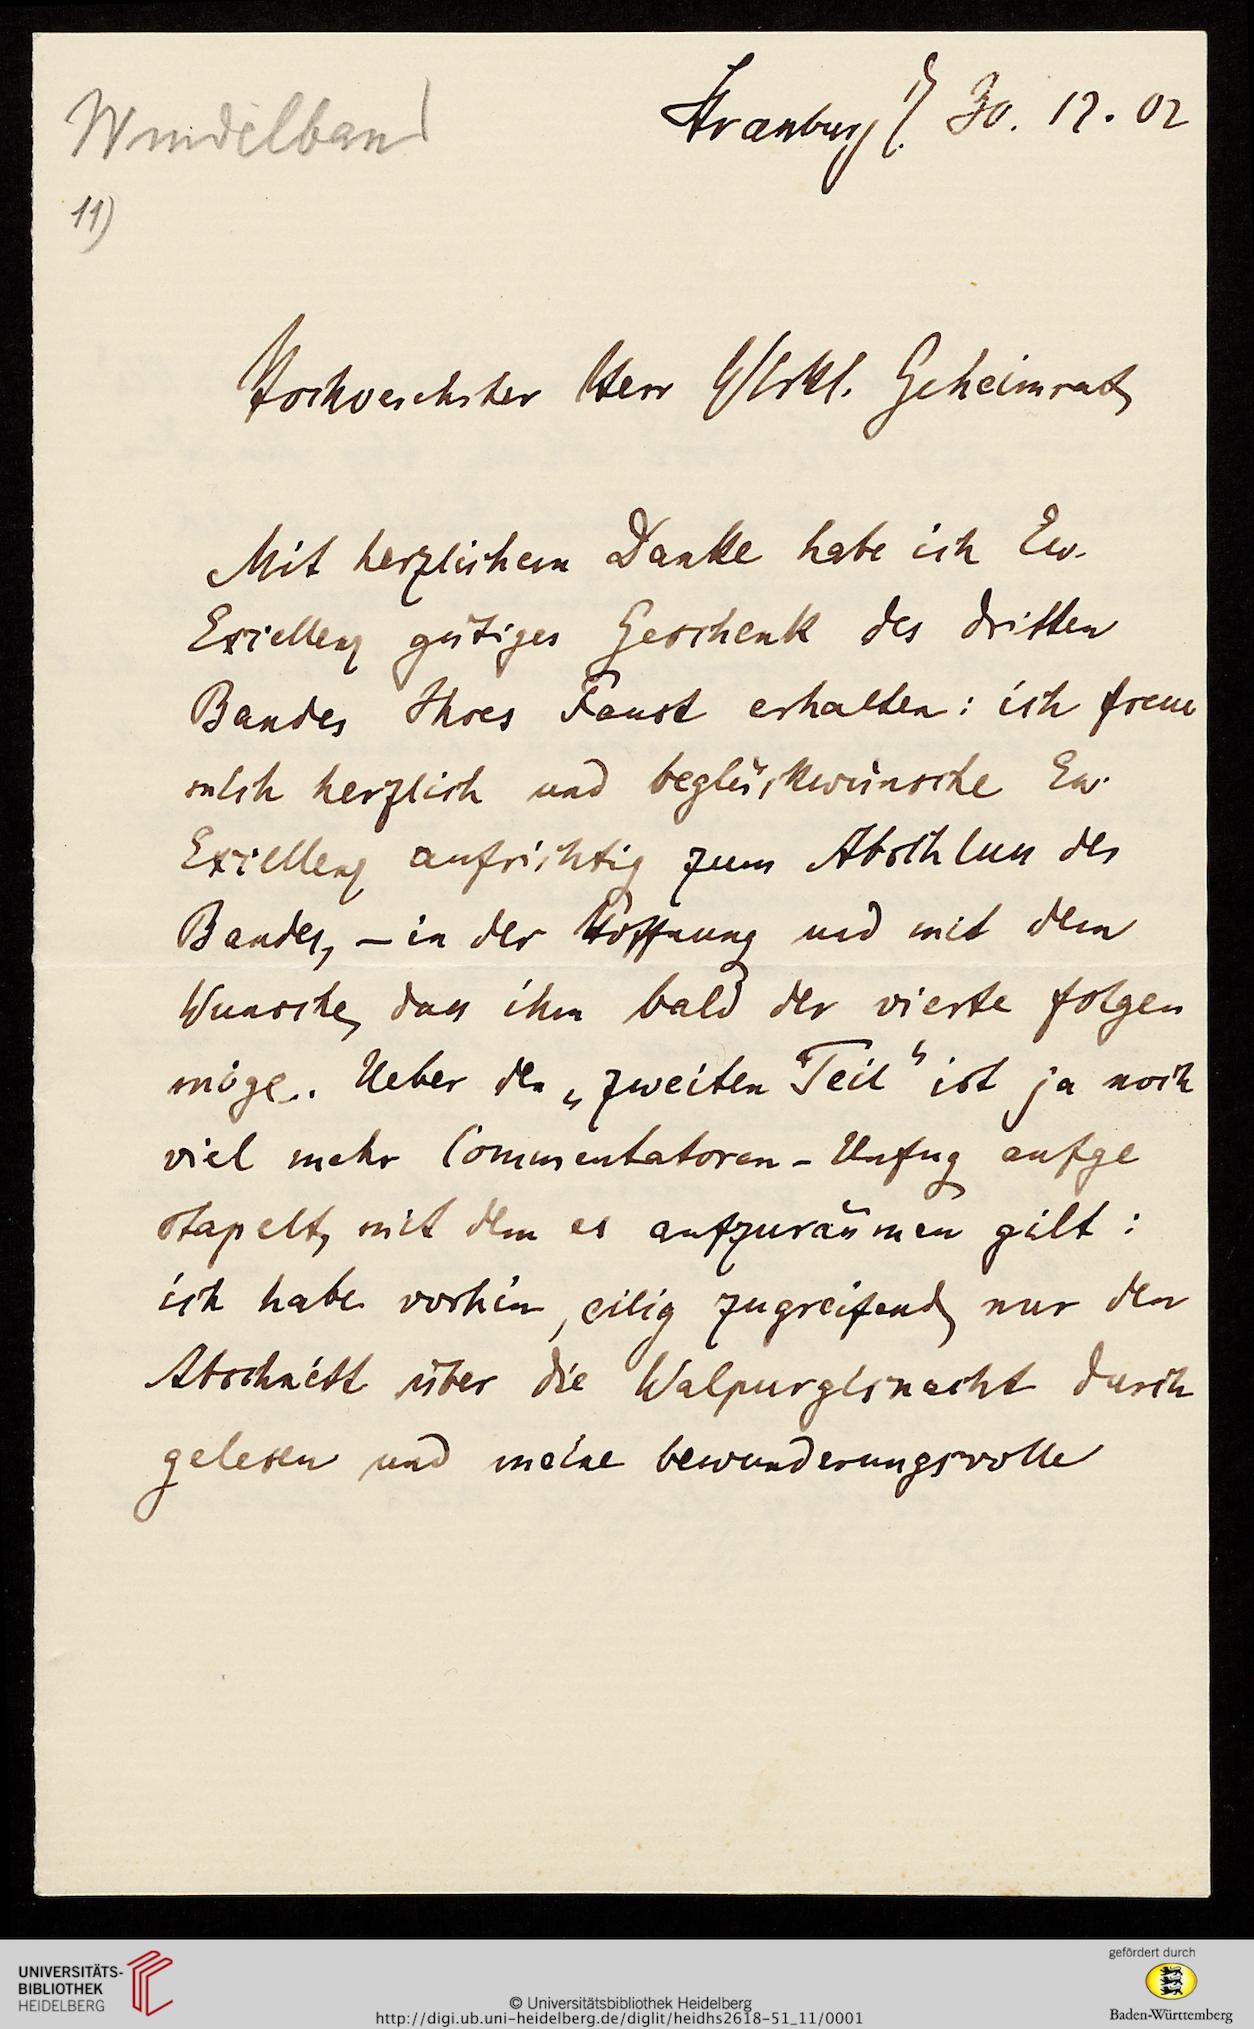 Windelband
11)
Strassburg i/E 30. 12. 02
Hochverehrter Herr Wirkl. Geheimrat,
Mit herzlichem Danke habe ich Ew.
Excellenz gütiges Geschenk des dritten
Bandes Ihres Faust erhalten: ich freue
mich herzlich und beglückwünsche Ew.
Excellenz aufrichtig zum Abschluss des
Bandes, – in der Hoffnung und mit dem
Wunsche, dass ihm bald der vierte folgen
möge. Ueber den „zweiten Teil“ ist ja noch
viel mehr Commentatoren-Unfug aufge
stapelt, mit dem es aufzuräumen gilt:
ich habe vorhin, eilig zugreifend, nur den
Abschnitt über die Walpurgisnacht durch
gelesen und meine bewunderungsvolle
UNIVERSITÄTS-
BIBLIOTHEK
HEIDELBERG
© Universitätsbibliothek Heidelberg
http://digi.ub.uni-heidelberg.de/diglit/heidhs2618-51_11/0001
gefördert durch
Baden-Württemberg